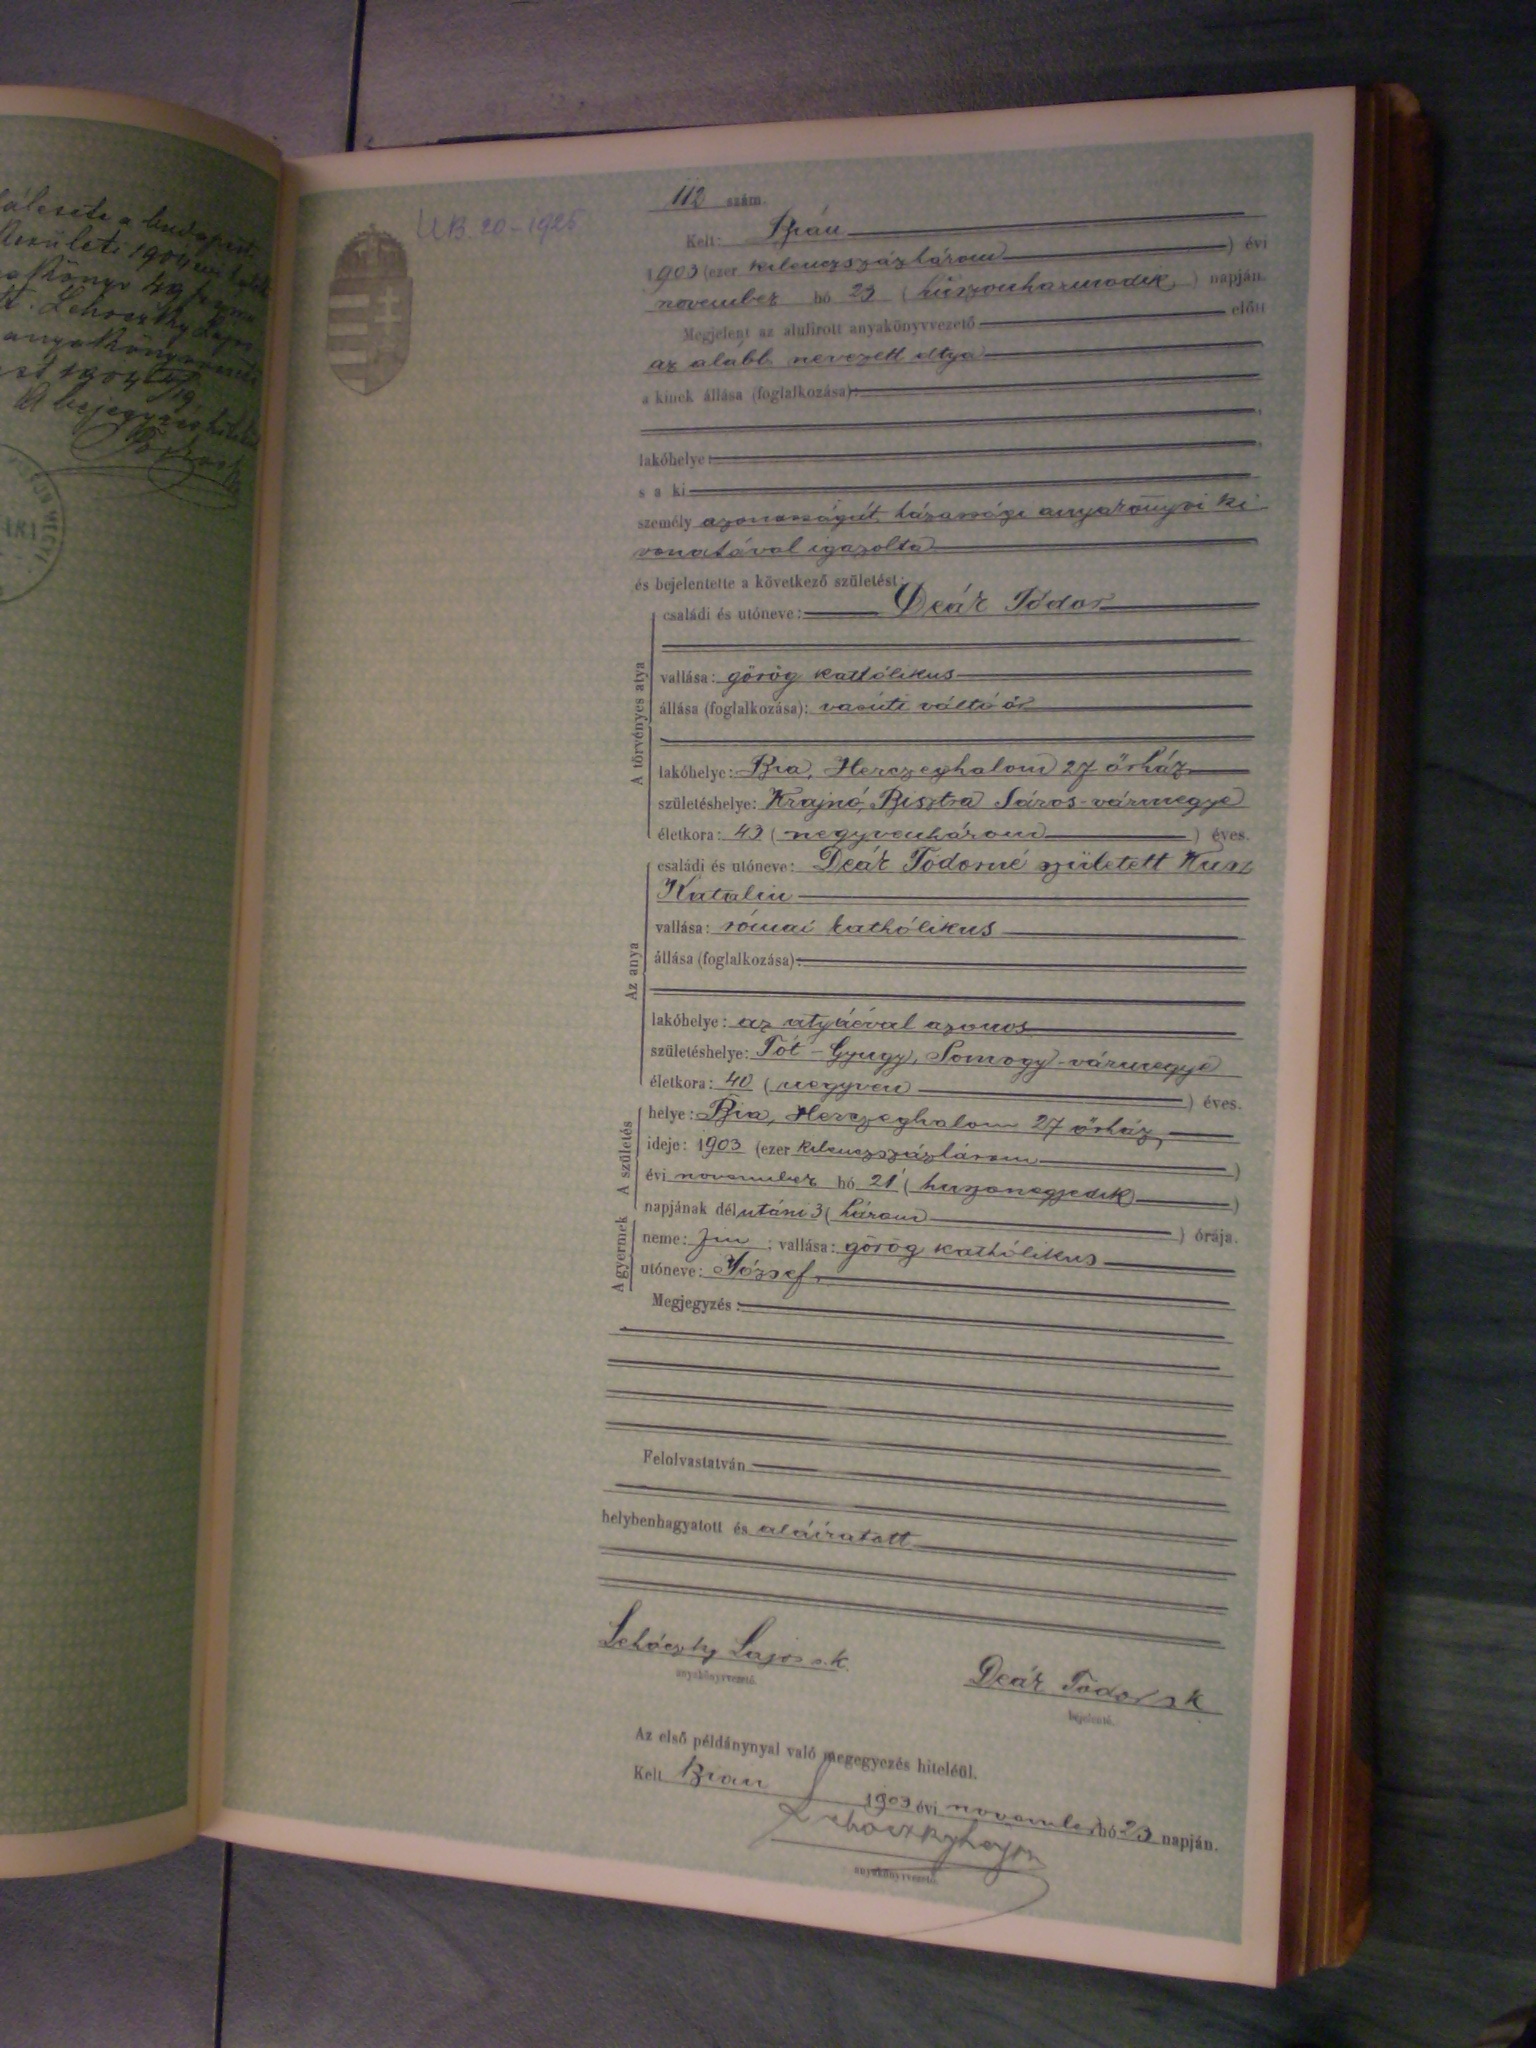 U.B. 20-1925
112 szám.
Kelt:
1903 (ezer kilenczszázhárom) évi
november hó 23 (huszonharmadik) napján.
Megjelent az alulirott anyakönyvvezető előtt
az alább nevezett atya
a kinek állása (foglalkozása):
lakóhelye:
s a ki
személy azonosságát házassági anyakönyvi ki
vonatával igazolta
és bejelentette a következő születést:
A törvényes atya
családi és utóneve: Deák Tódor
vallása: görög kathólikus
állása (foglalkozása): vasúti váltó őr
lakóhelye: Bia, Herczeghalom 27 őrház
születéshelye: Krajnó, Bisztra Sáros-vármegye
életkora: 43 (negyvenhárom) éves.
Az anya
családi és utóneve: Deák Tódorné született
Katalin
vallása: római kathólikus
állása (foglalkozása):
lakóhelye: az atyáéval azonos
születéshelye: Tót-Gyugy, Somogy-vármegye
életkora: 40 (negyven) éves.
A születés
helye: Bia, Herczeghalom 27 őrház,
ideje: 1903 (ezer kilenczszázhárom)
évi november hó 21 (huszonegyedik)
napjának délutáni 3 (három) órája.
A gyermek
neme: fiu; vallása: görög kathólikus
utóneve: József.
Megjegyzés:
Felolvastatván
helybenhagyatott és aláíratott
Lehóczky Lajos s.k.
anyakönyvvezető.
Deák Tódor s k.
bejelentő.
Az első példánynyal való megegyezés hiteléül.
Kelt Bián 1903 évi november hó 23 napján.
Lehóczky Lajos
anyakönyvvezető.